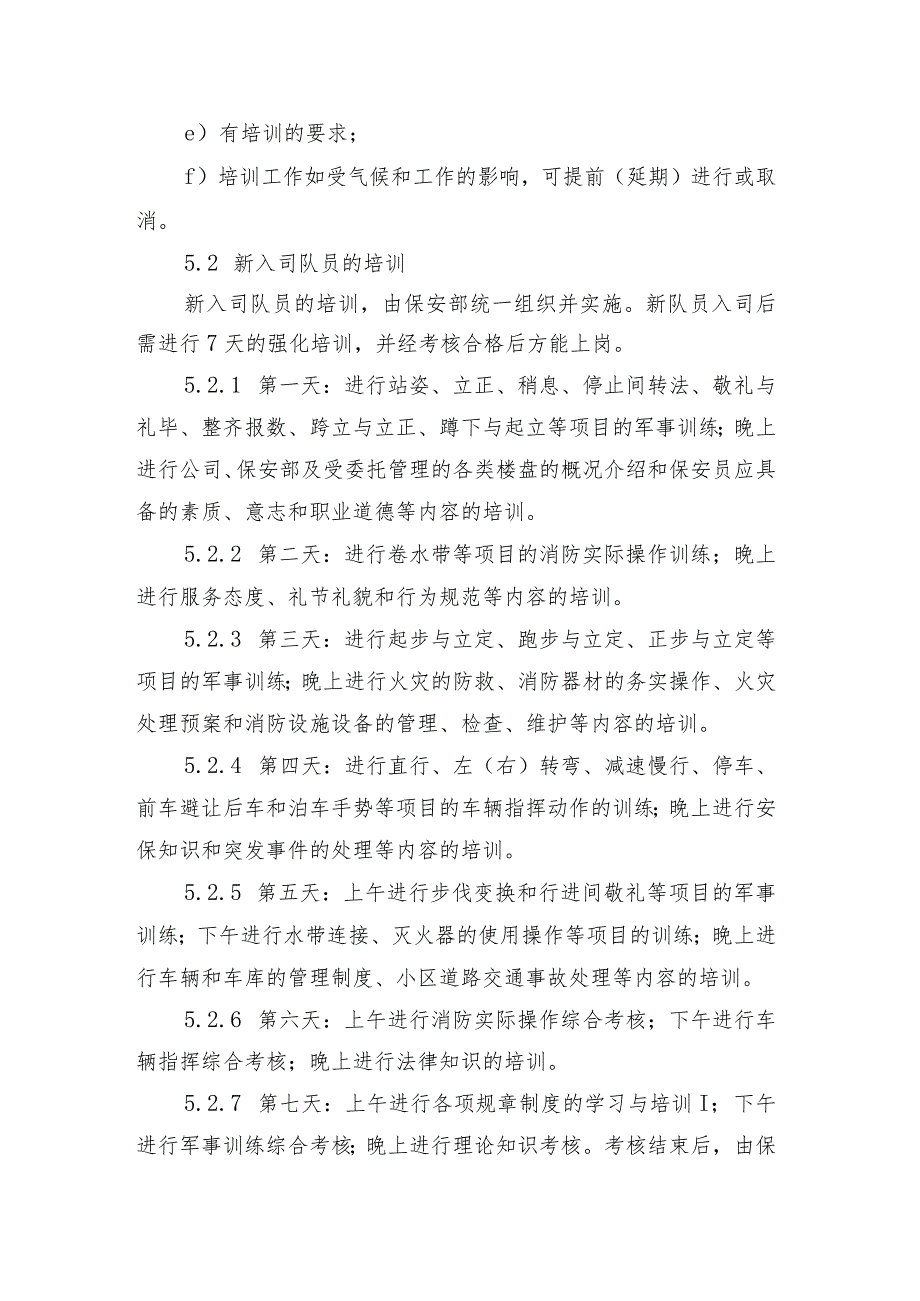 e）有培训的要求；
f）培训工作如受气候和工作的影响，可提前（延期）进行或取
消。
5.2 新入司队员的培训
新入司队员的培训，由保安部统一组织并实施。新队员入司后
需进行7天的强化培训，并经考核合格后方能上岗。
5.2.1 第一天：进行站姿、立正、稍息、停止间转法、敬礼与
礼毕、整齐报数、跨立与立正、蹲下与起立等项目的军事训练；晚上
进行公司、保安部及受委托管理的各类楼盘的概况介绍和保安员应具
备的素质、意志和职业道德等内容的培训。
5.2.2 第二天：进行卷水带等项目的消防实际操作训练；晚上
进行服务态度、礼节礼貌和行为规范等内容的培训。
5.2.3 第三天：进行起步与立定、跑步与立定、正步与立定等
项目的军事训练；晚上进行火灾的防救、消防器材的务实操作、火灾
处理预案和消防设施设备的管理、检查、维护等内容的培训。
5.2.4 第四天：进行直行、左（右）转弯、减速慢行、停车、
前车避让后车和泊车手势等项目的车辆指挥动作的训练；晚上进行安
保知识和突发事件的处理等内容的培训。
5.2.5 第五天：上午进行步伐变换和行进间敬礼等项目的军事
训练；下午进行水带连接、灭火器的使用操作等项目的训练；晚上进
行车辆和车库的管理制度、小区道路交通事故处理等内容的培训。
5.2.6 第六天：上午进行消防实际操作综合考核；下午进行车
辆指挥综合考核；晚上进行法律知识的培训。
5.2.7 第七天：上午进行各项规章制度的学习与培训I；下午
进行军事训练综合考核；晚上进行理论知识考核。考核结束后，由保